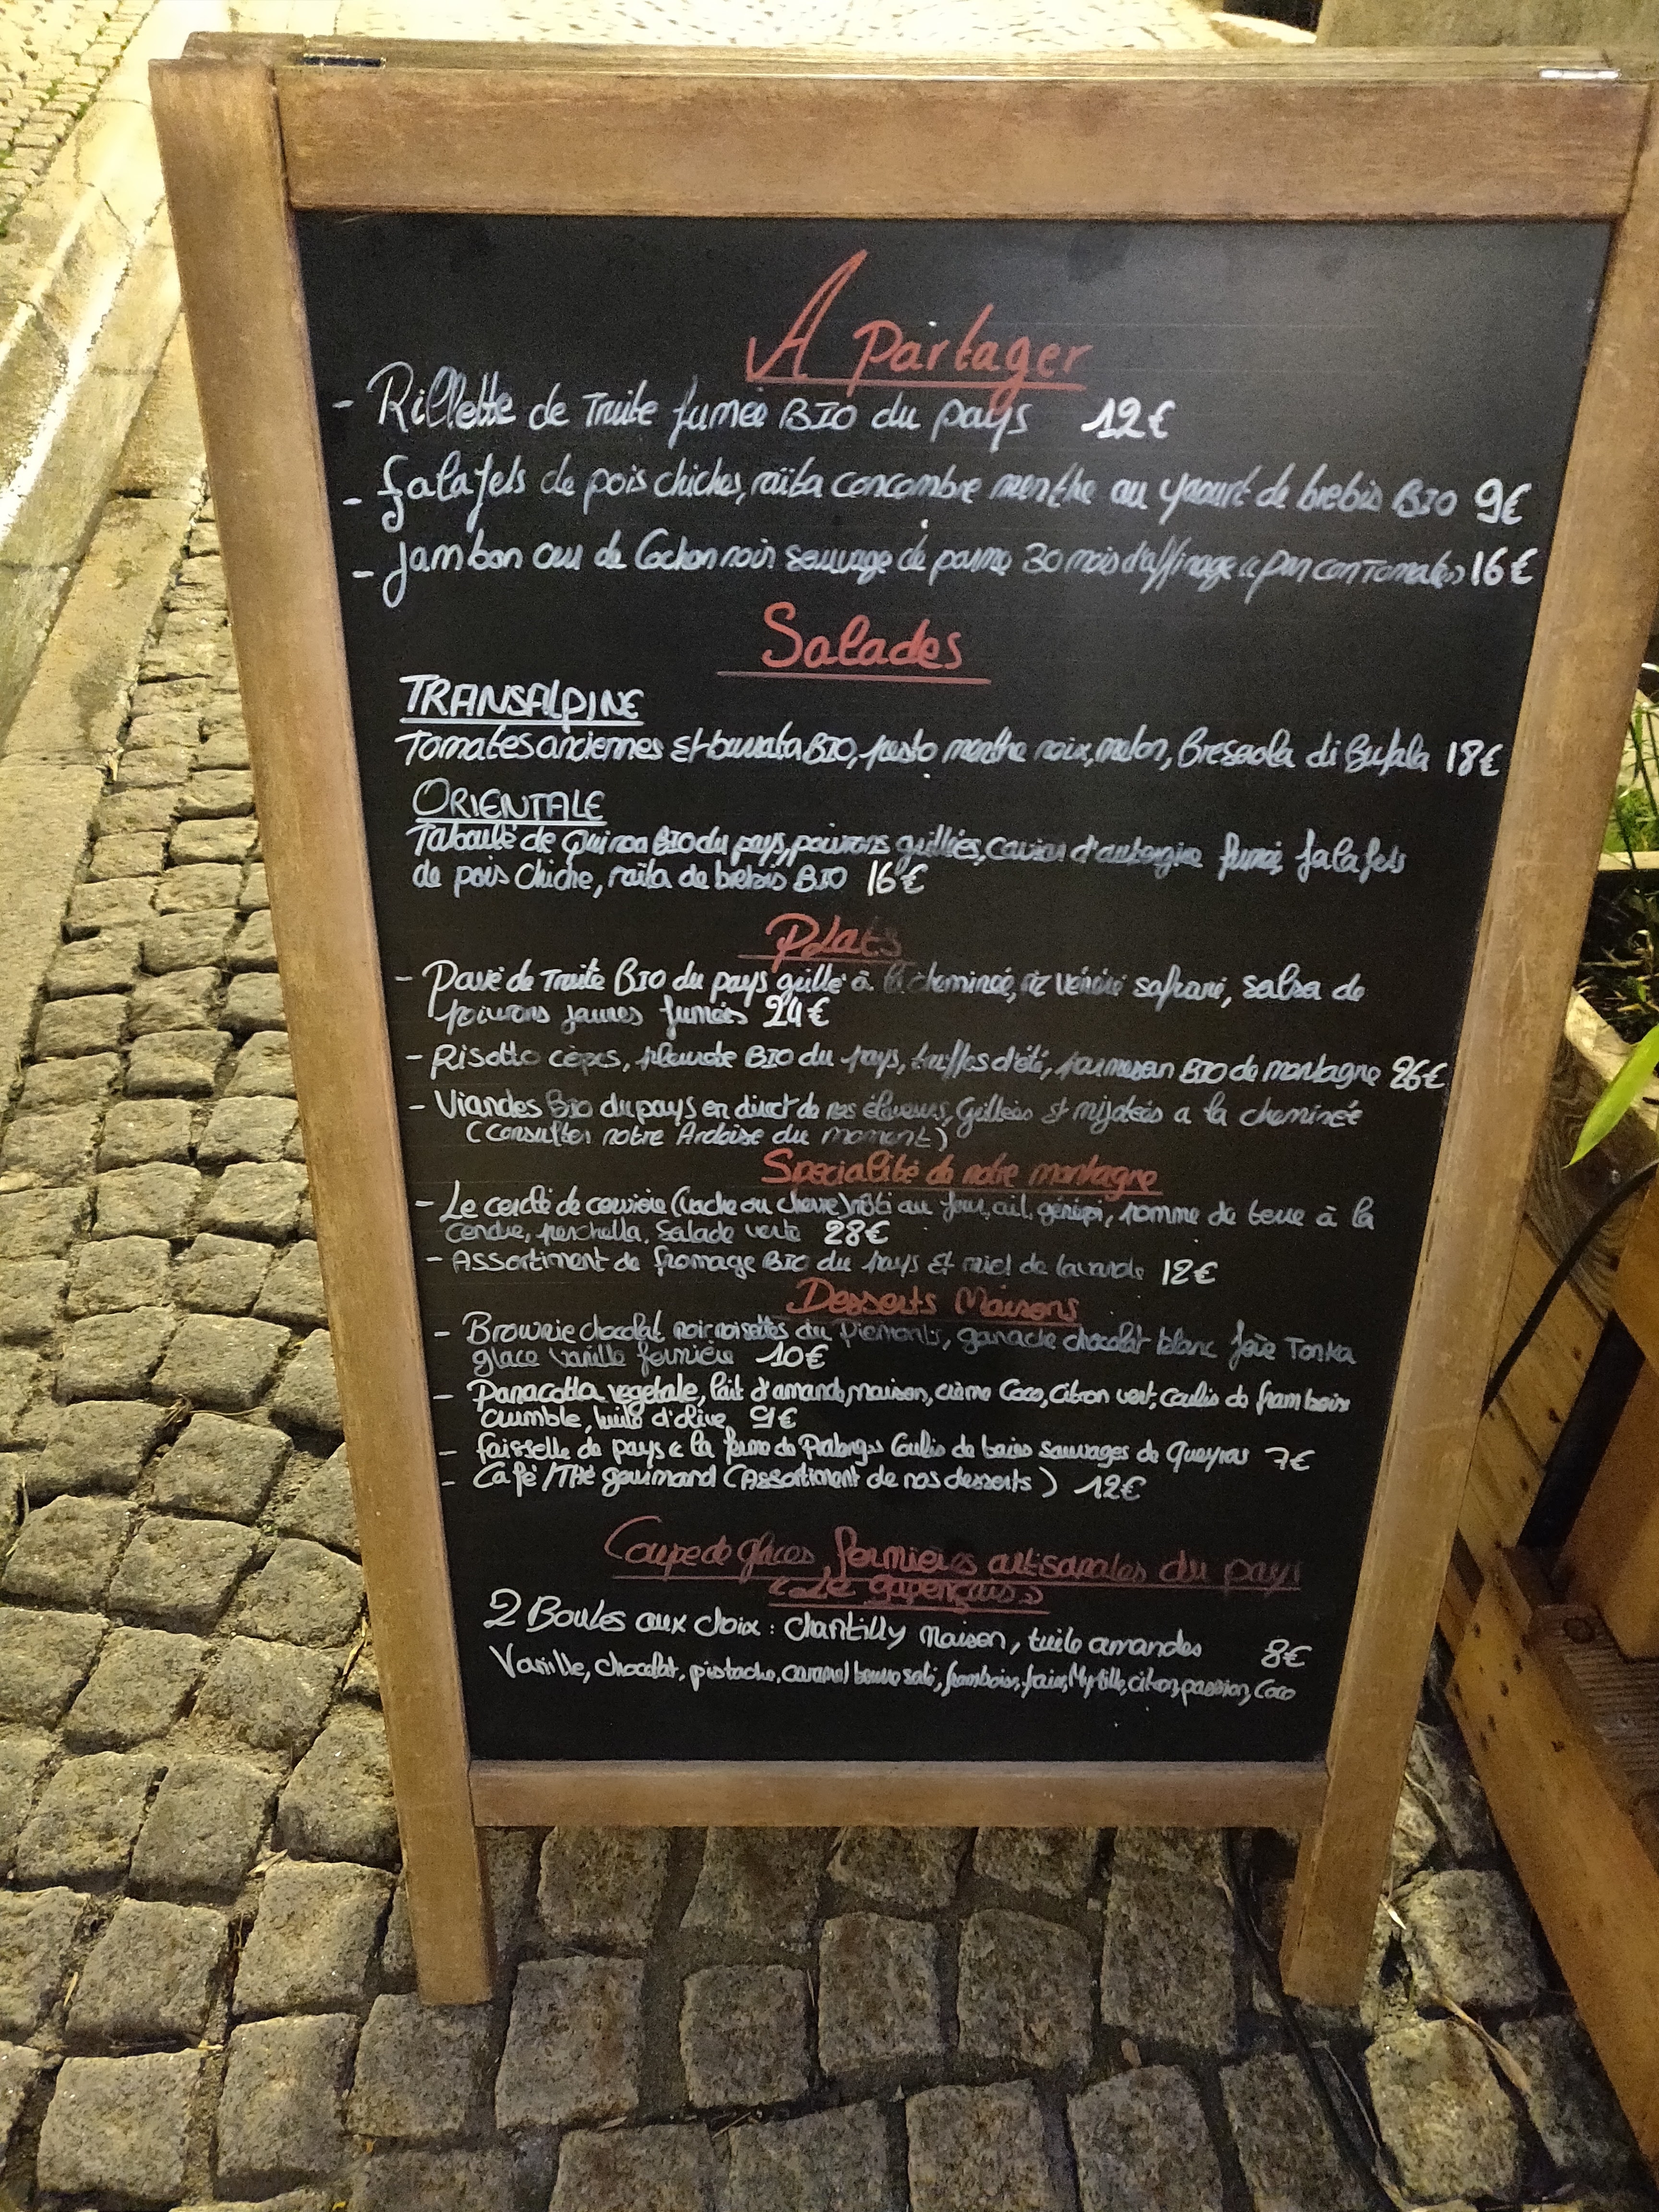 A partager
- Rillette de Truite fumée BIO du pays 12€
- falafels de pois chiches, raïta concombre menthe au yaourt de brebis BIO 9€
- Jambon cru de Cochon noir sauvage de parme 30 mois d'affinage pan con Tomates 16€
Salades
TRANSALPINE
Tomates anciennes et burrata BIO, pesto menthe noix, melon, Bresaola di Bufala 18€
ORIENTALE
Taboulé de Quinoa BIO du pays, poivrons grillés, caviar d'aubergine fumé, falafels
de pois chiche, raïta de brebis BIO 16€
Plats
- Pavé de Truite BIO du pays grillé à la cheminée, riz vénéré safrané, salsa de
poivrons jaunes fumées 24€
- Risotto cèpes, pleurote BIO du pays, truffes d'été, parmesan BIO de montagne 26€
- Viandes Bio du pays en direct de nos éleveurs, Grillées et mijotées a la cheminée
(Consulter notre Ardoise du moment)
Spécialité de notre montagne
- Le cerclé de cervière (Vache ou chèvre) rôti au four, ail, génépi, pomme de terre à la
cendre, porchetta, Salade verte 28€
- Assortiment de fromage BIO du pays et miel de lavande 12€
Desserts Maisons
- Brownie chocolat noir noisettes du Piemonts, ganache chocolat blanc fève Tonka
glace vanille fermière 10€
- Panacotta vegetale, lait d'amande maison, crème Coco, Citron vert, coulis de framboise
crumble, huile d'olive 9€
- faisselle de pays de la ferme de Coulis de baies sauvages de Queyras 7€
- Café/Thé gourmand (Assortiment de nos desserts) 12€
Coupe de glaces fermières artisanales du pays
"Le gapençais"
2 Boules aux choix : Chantilly Maison, tuile amandes 8€
Vanille, chocolat, pistache, caramel beurre salé, framboise, fraise, Myrtille, citron, passion, Coco